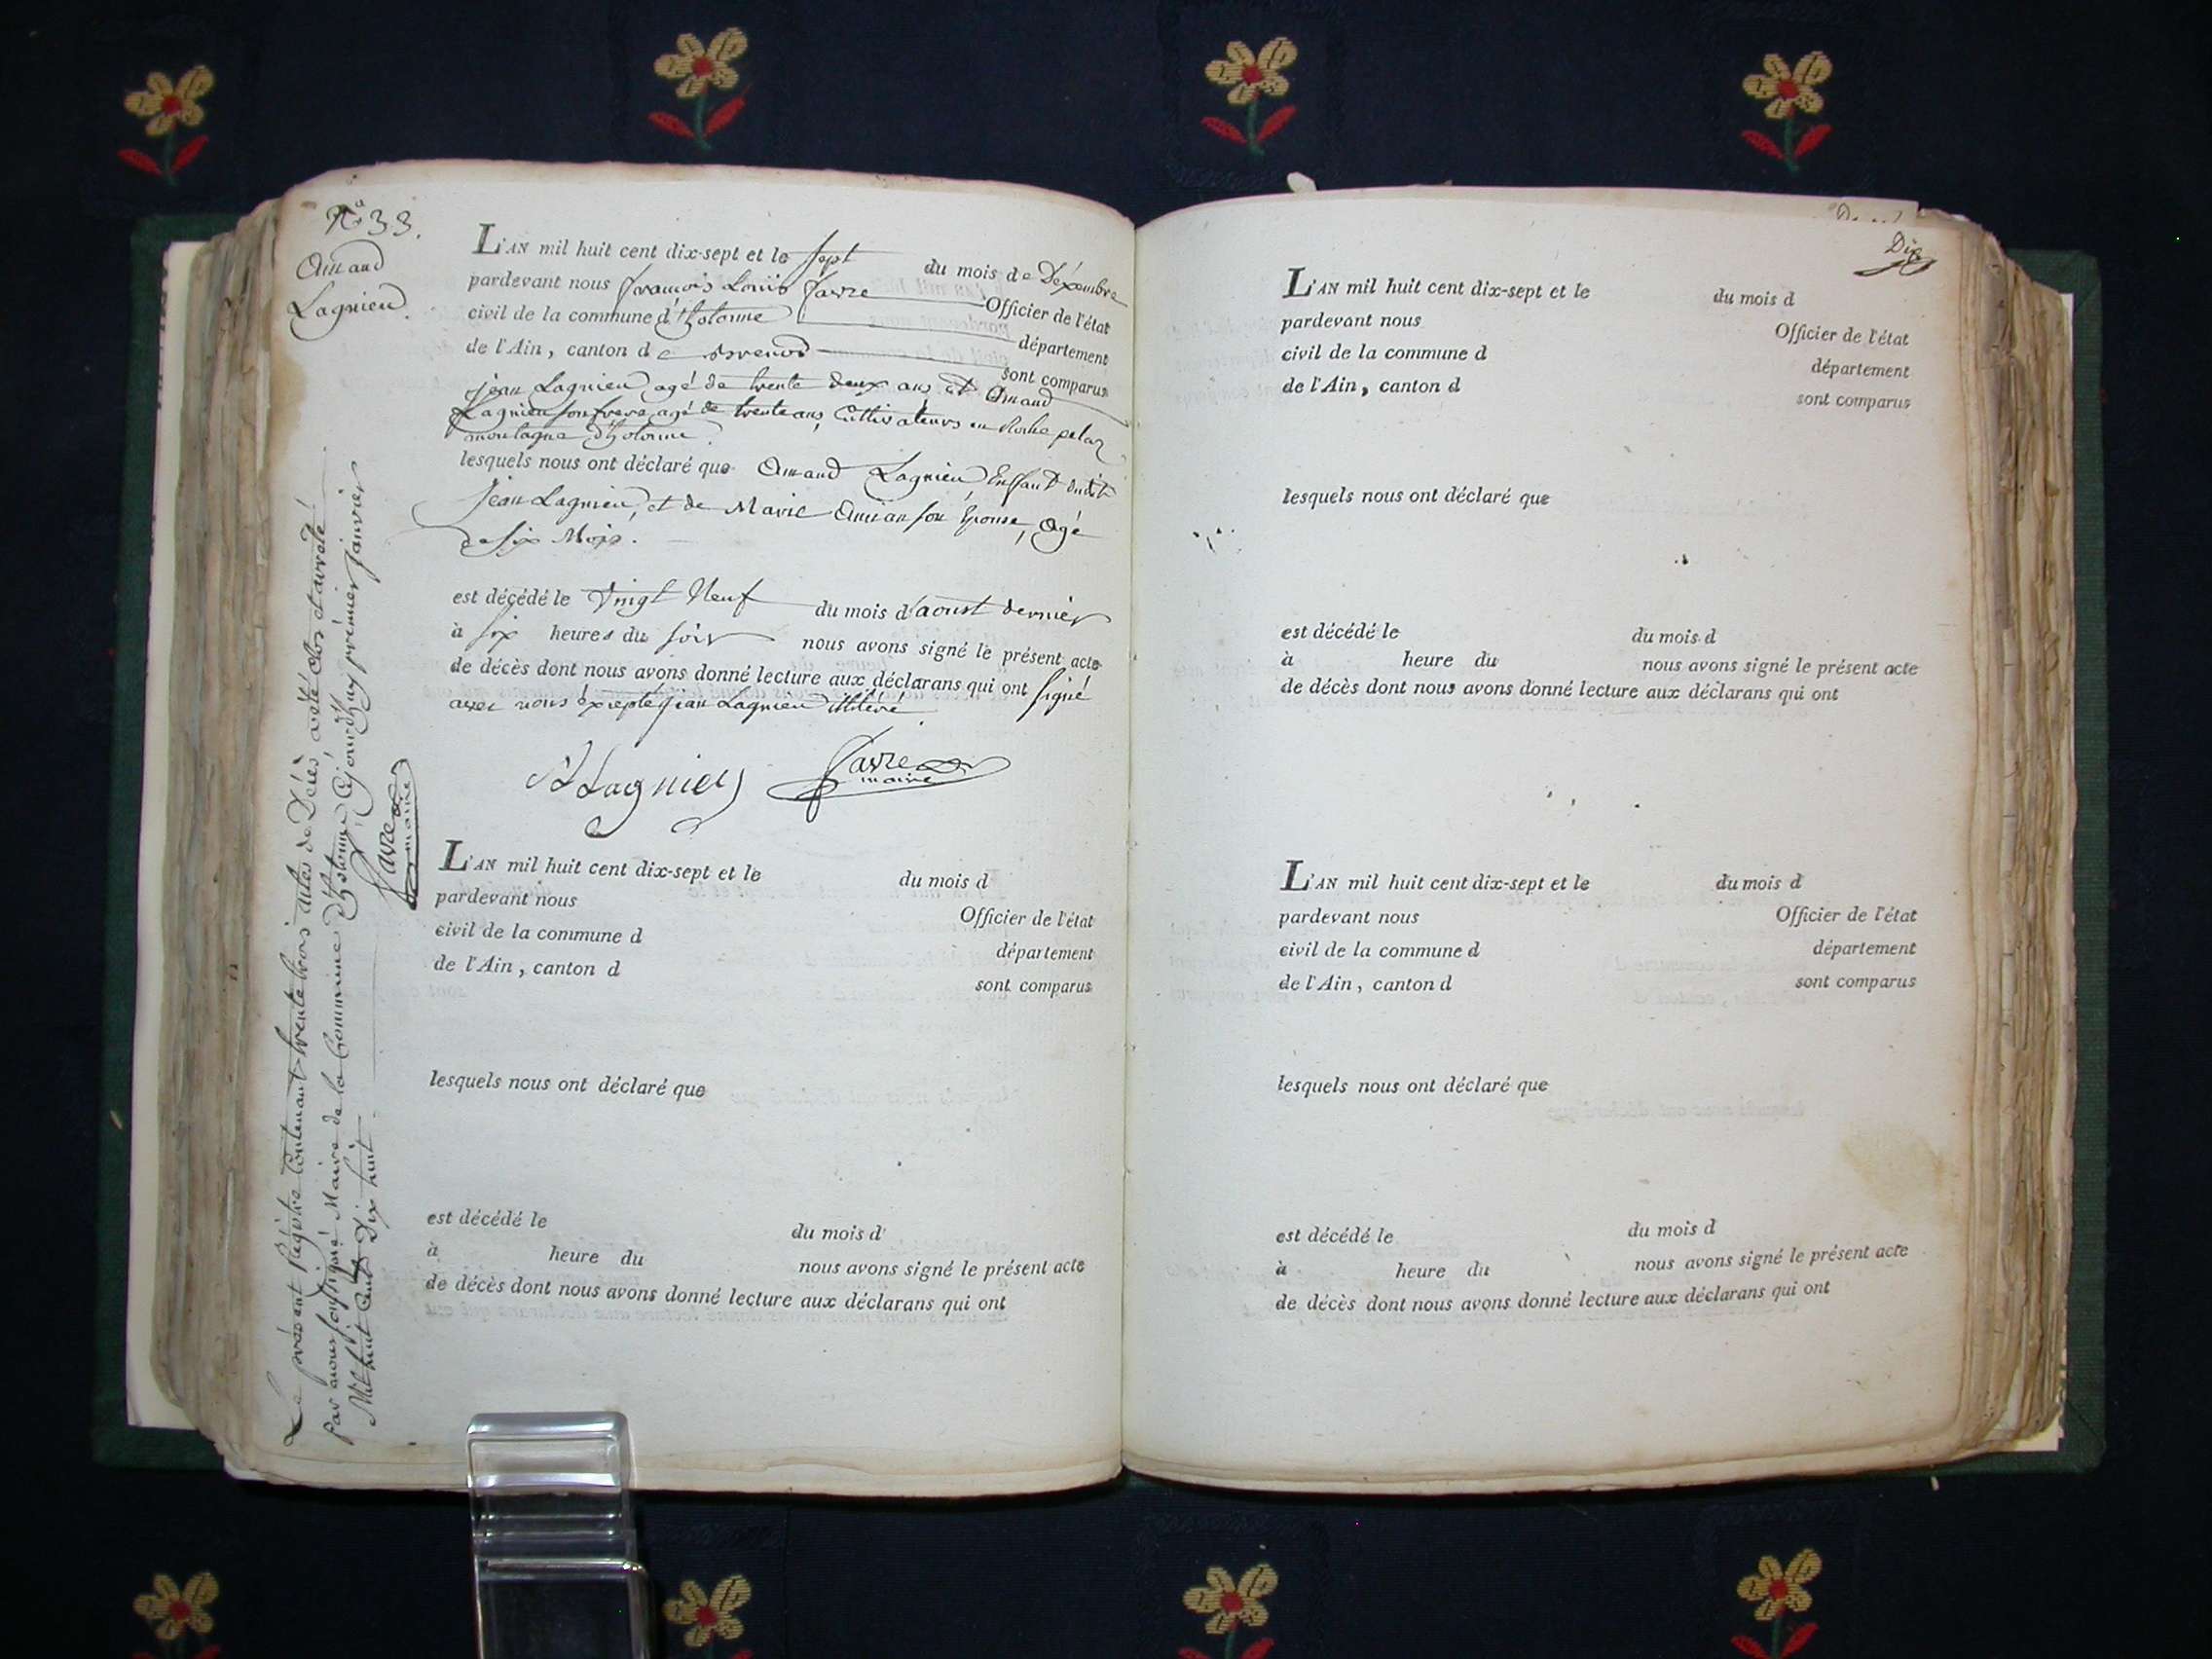 N.° 33.
Amand
Lagnieu.
L'AN mil huit cent dix-sept et le sept du mois de Décembre
pardevant nous francois Louis favre Officier de l'état
civil de la commune d'hotonne département
de l'Ain, canton de Brenod sont comparus
jean Lagnieu agé de trente deux ans, et Amand
Lagnieu son frere, agé de trente ans, Cultivateurs en
montagne d'hotonne.
lesquels nous ont déclaré que Amand Lagnieu Enfant dudit
jean Lagnieu, et de Marie son Epouse, Agé
de six Mois.
est décédé le Vingt Neuf du mois d'aoust dernier
à six heures du soir nous avons signé le présent acte
de décès dont nous avons donné lecture aux déclarans qui ont signé
avec nous éxcepté jean Lagnieu illitéré.
A Lagnieu favre
maire
Le présent Régistre Contenant trente trois actes de Décès, a eté Clos et arreté
par nous soussigné Maire de la Commune d'hotonne, Cejourdhuy premier janvier
Mil huit Cent Dix huit
favre
maire
L'AN mil huit cent dix-sept et le du mois d
pardevant nous Officier de l'état
civil de la commune d département
de l'Ain, canton d sont comparus
lesquels nous ont déclaré que
est décédé le du mois d'
à heure du nous avons signé le présent acte
de décès dont nous avons donné lecture aux déclarans qui ont
Dix
L'AN mil huit cent dix-sept et le du mois d
pardevant nous Officier de l'état
civil de la commune d département
de l'Ain, canton d sont comparus
lesquels nous ont déclaré que
est décédé le du mois d
à heure du nous avons signé le présent acte
de décès dont nous avons donné lecture aux déclarans qui ont
L'AN mil huit cent dix-sept et le du mois d
pardevant nous Officier de l'état
civil de la commune d département
de l'Ain, canton d sont comparus
lesquels nous ont déclaré que
est décédé le du mois d
à heure du nous avons signé le présent acte
de décès dont nous avons donné lecture aux déclarans qui ont